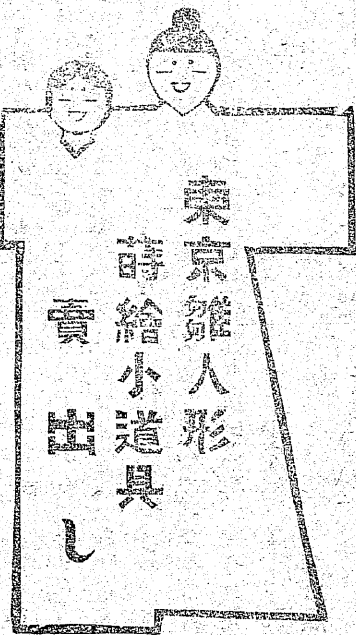 東京雛人形
蒔絵小道具
賣出し